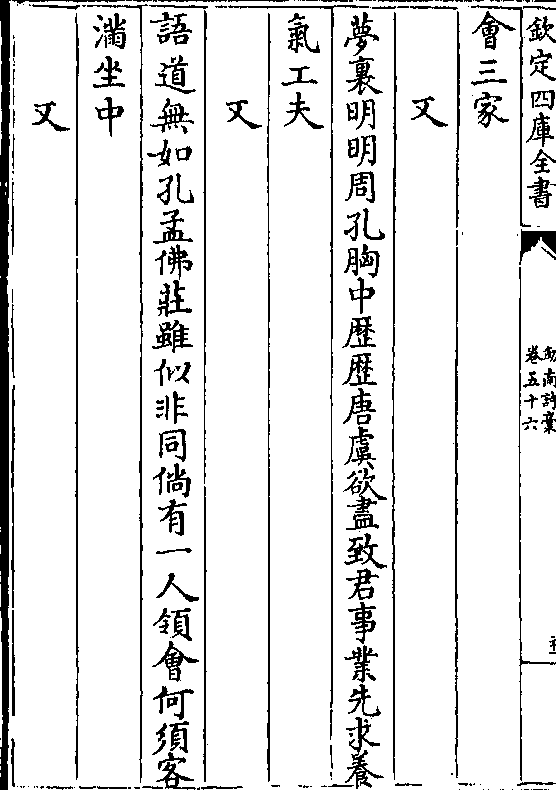 欽定四庫全書
劍南詩稾
卷五十六
會三家
又
夢裏明明周孔胸中歴歴唐虞欲盡致君事業先求養
氣工夫
又
語道無如孔孟佛莊雖似非同倘有一人領會何須客
滿坐中
又